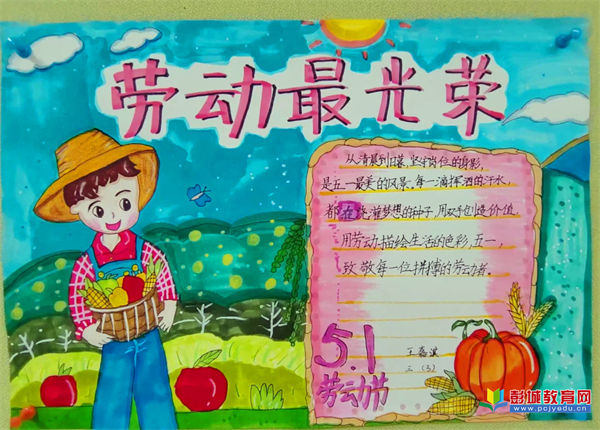 劳动最光荣
从清晨到日暮,坚守岗位的身影,
是五一最美的风景。每一滴挥洒的汗水,
都在浇灌梦想的种子,用双手创造价值,
用劳动描绘生活的色彩,五一,
致敬每一位拼搏的劳动者。
5.1
劳动节
王嘉
三(3)
彭城教育网
www.pcjyedu.cn